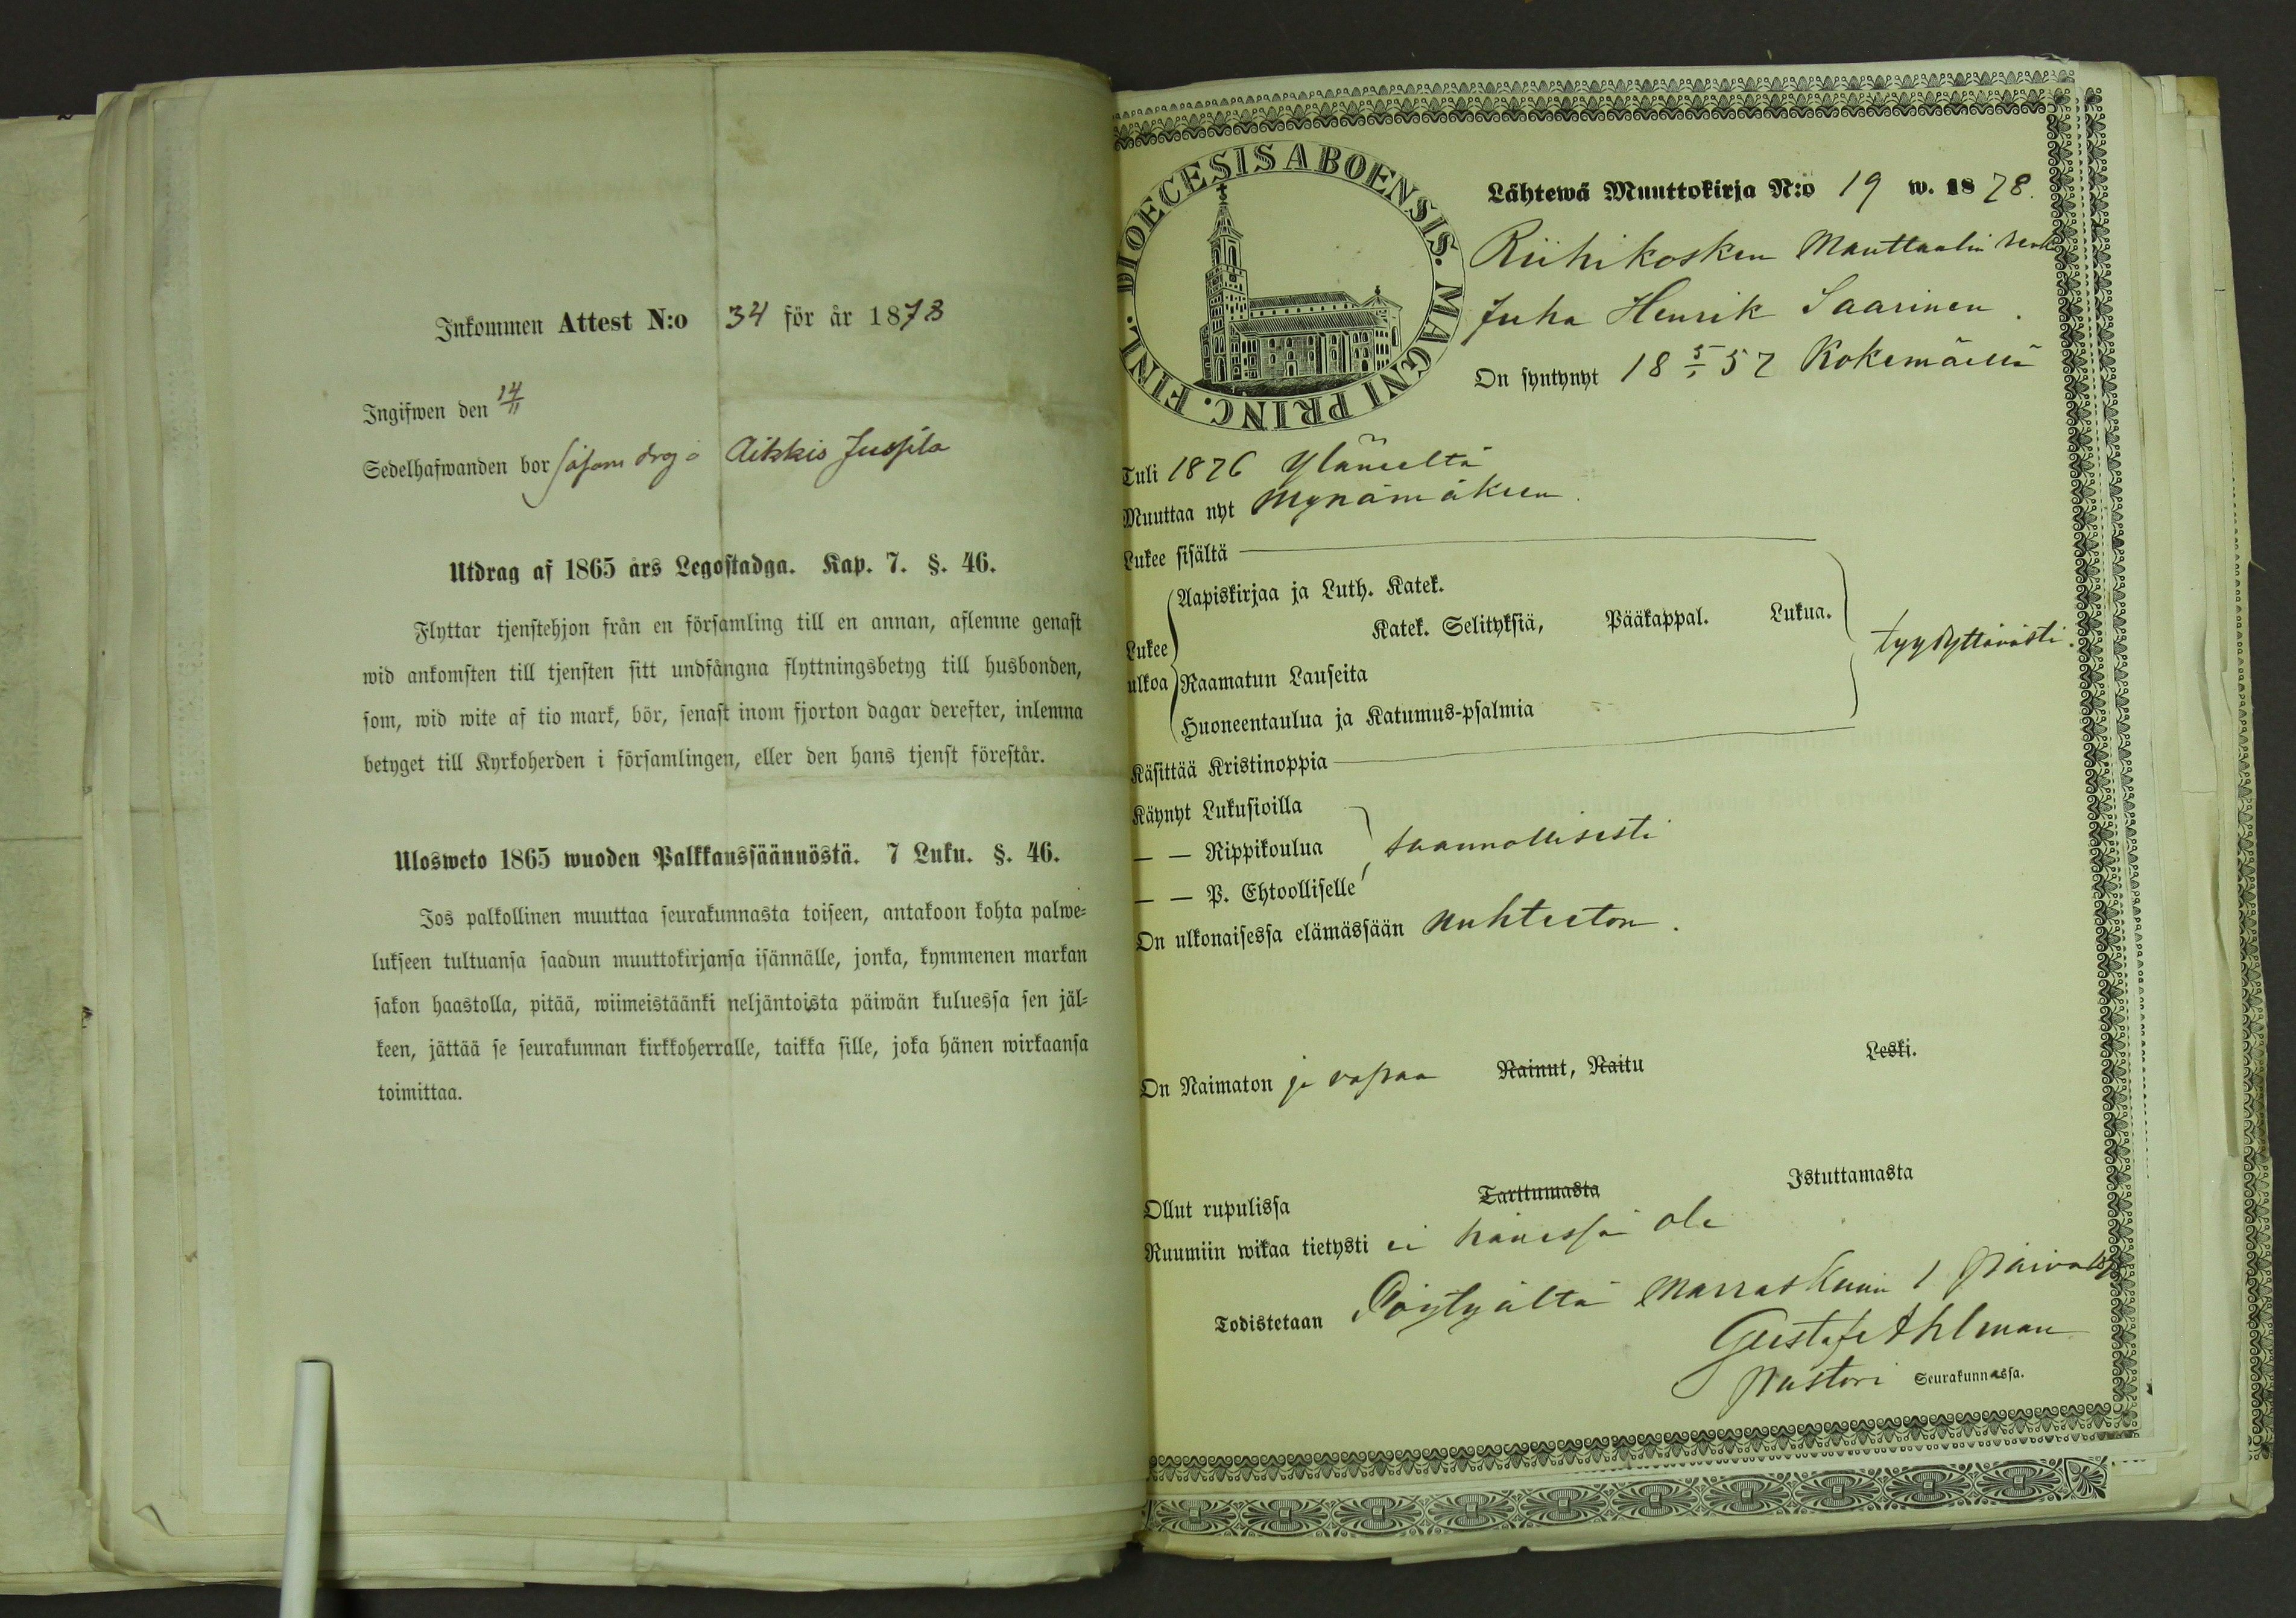 Inkommen Attest N:o 34 för år 1878
Ingifwen den 14/11
Sedelhafwanden bor såsom drg å Aikkis Jussila
Utdrag af 1865 års Legostadga. Kap. 7. §. 46.
Flyttar tjenstehjon från en församling till en annan, aflemne genast
wid ankomsten till tjensten sitt undfångna flyttningsbetyg till husbonden,
som, wid wite af tio mark, bör, senast inom fjorton dagar derefter, inlemna
betyget till Kyrkoherden i församlingen, eller den hans tjenst förestår.
Ulosweto 1865 wuoden Palkkaussäännöstä. 7 Luku. §. 46.
Jos palkollinen muuttaa seurakunnasta toiseen, antakoon kohta palwe-
lukseen tultuansa saadun muuttokirjansa isännälle, jonka, kymmenen markan
sakon haastolla, pitää, wiimeistäänki neljäntoista päiwän kuluessa sen jäl-
keen, jättää se seurakunnan kirkkoherralle, taikka sille, joka hänen wirkaansa
toimittaa.
DIOECESIS ABOENSIS. MAGNI PRINC. FINL.
Lähtewä Muuttokirja N:o 19 w. 1878.
Riihikosken Manttaalin renk
Juha Henrik Saarinen.
On syntynyt 18 5/1 57 Kokemäellä
Tuli 1876 Yläneeltä
Muuttaa nyt Mynämäkeen.
Lukee sisältä
Lukee ulkoa
Aapiskirjaa ja Luth. Katek.
Katek. Selityksiä, Pääkappal. Lukua.
tyydyttävästi.
Raamatun Lauseita
Huoneentaulua ja Katumus-psalmia
Käsittää Kristinoppia
Käynyt Lukusioilla
— — Rippikoulua saannollisesti
— — P. Ehtoolliselle
On ulkonaisessa elämässään nuhteeton.
On Naimaton ja vapaa Nainut, Naitu Leski.
Ollut rupulissa Tarttumasta Istuttamasta
Ruumiin wikaa tietysti ei hänessä ole
Todistetaan Pöytyältä Marraskuun 1 päivä
Gustaf Ahlman
pastori Seurakunnassa.